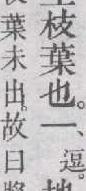 枝葉也。一、逗。
葉未出。故曰